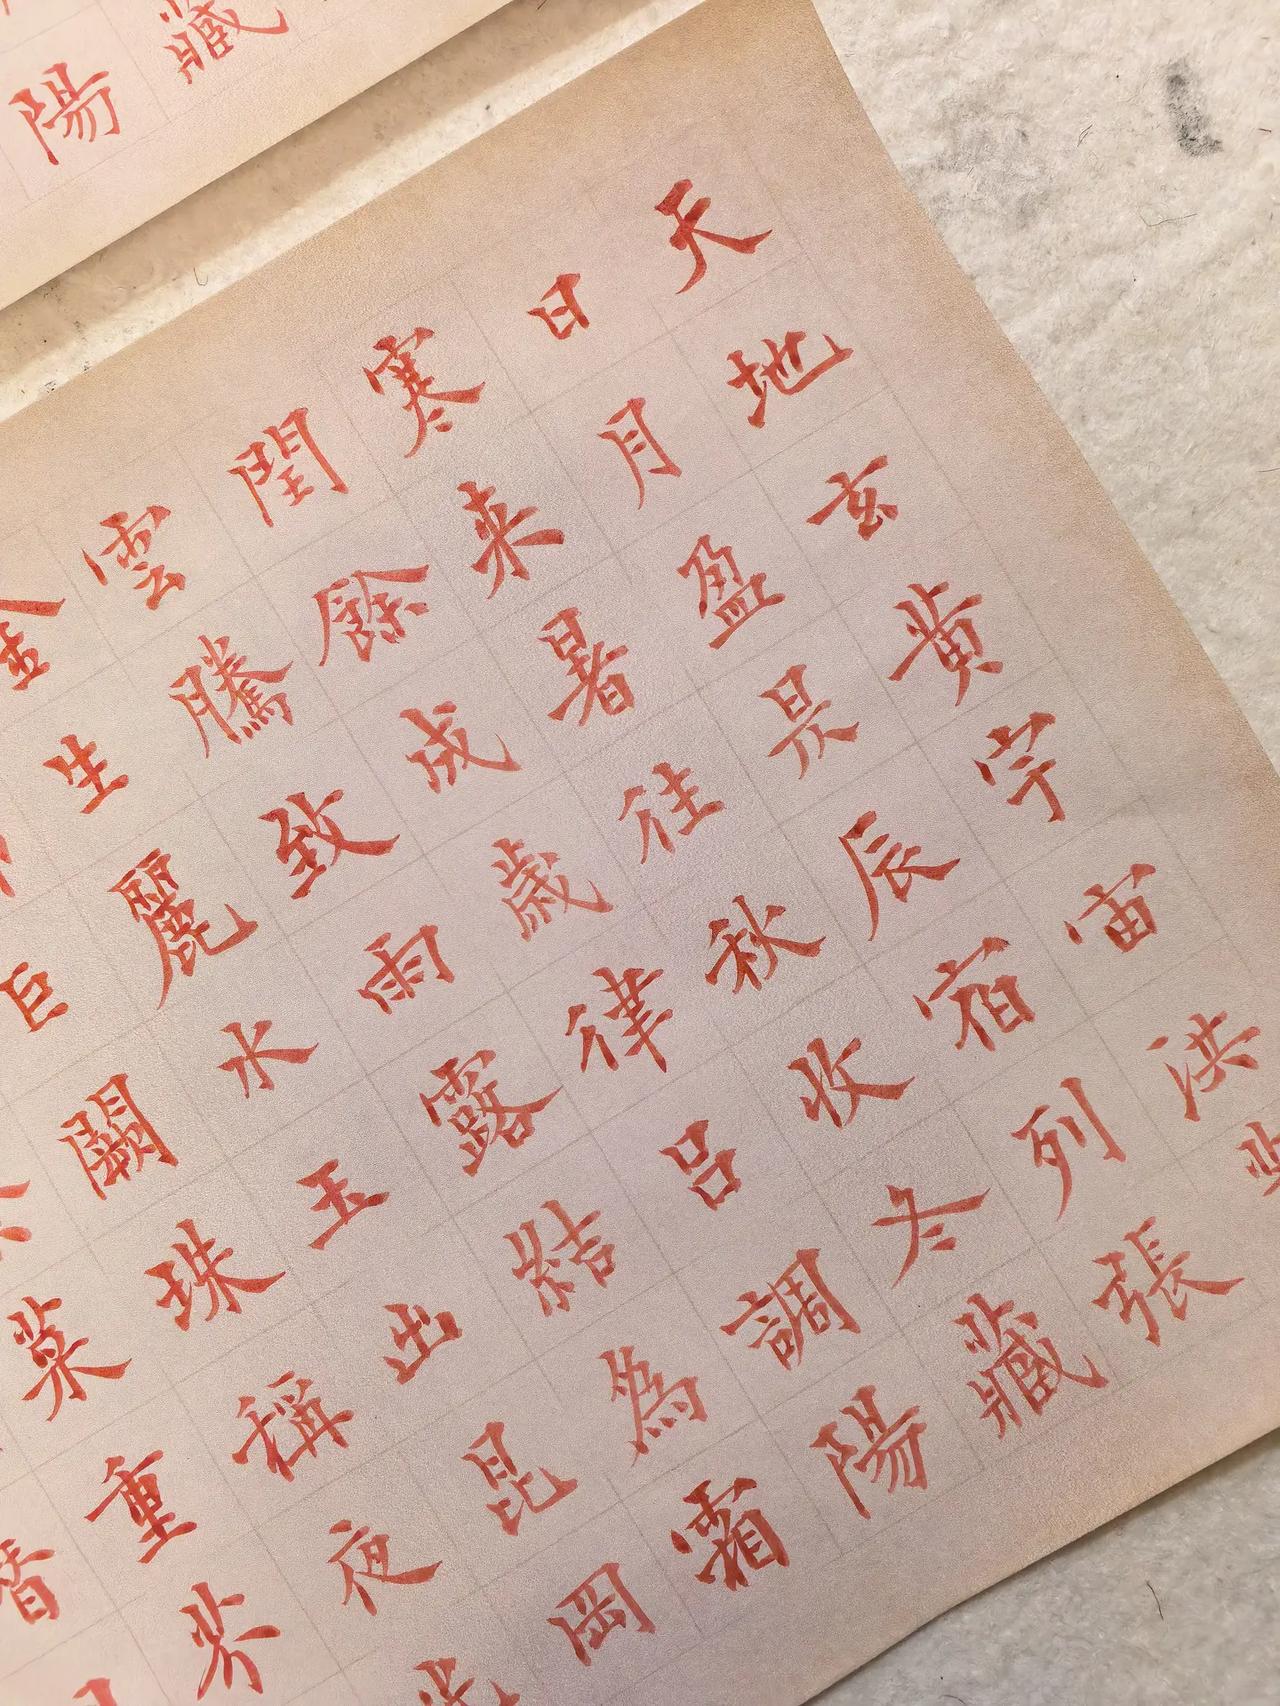 天地玄黃宇宙洪
日月盈昃辰宿列張
寒来暑往秋收冬藏
閏餘成歳律呂調陽
雲騰致雨露結為霜
金生麗水玉出昆岡
巨闕珠稱夜
菜重芥
藏
陽